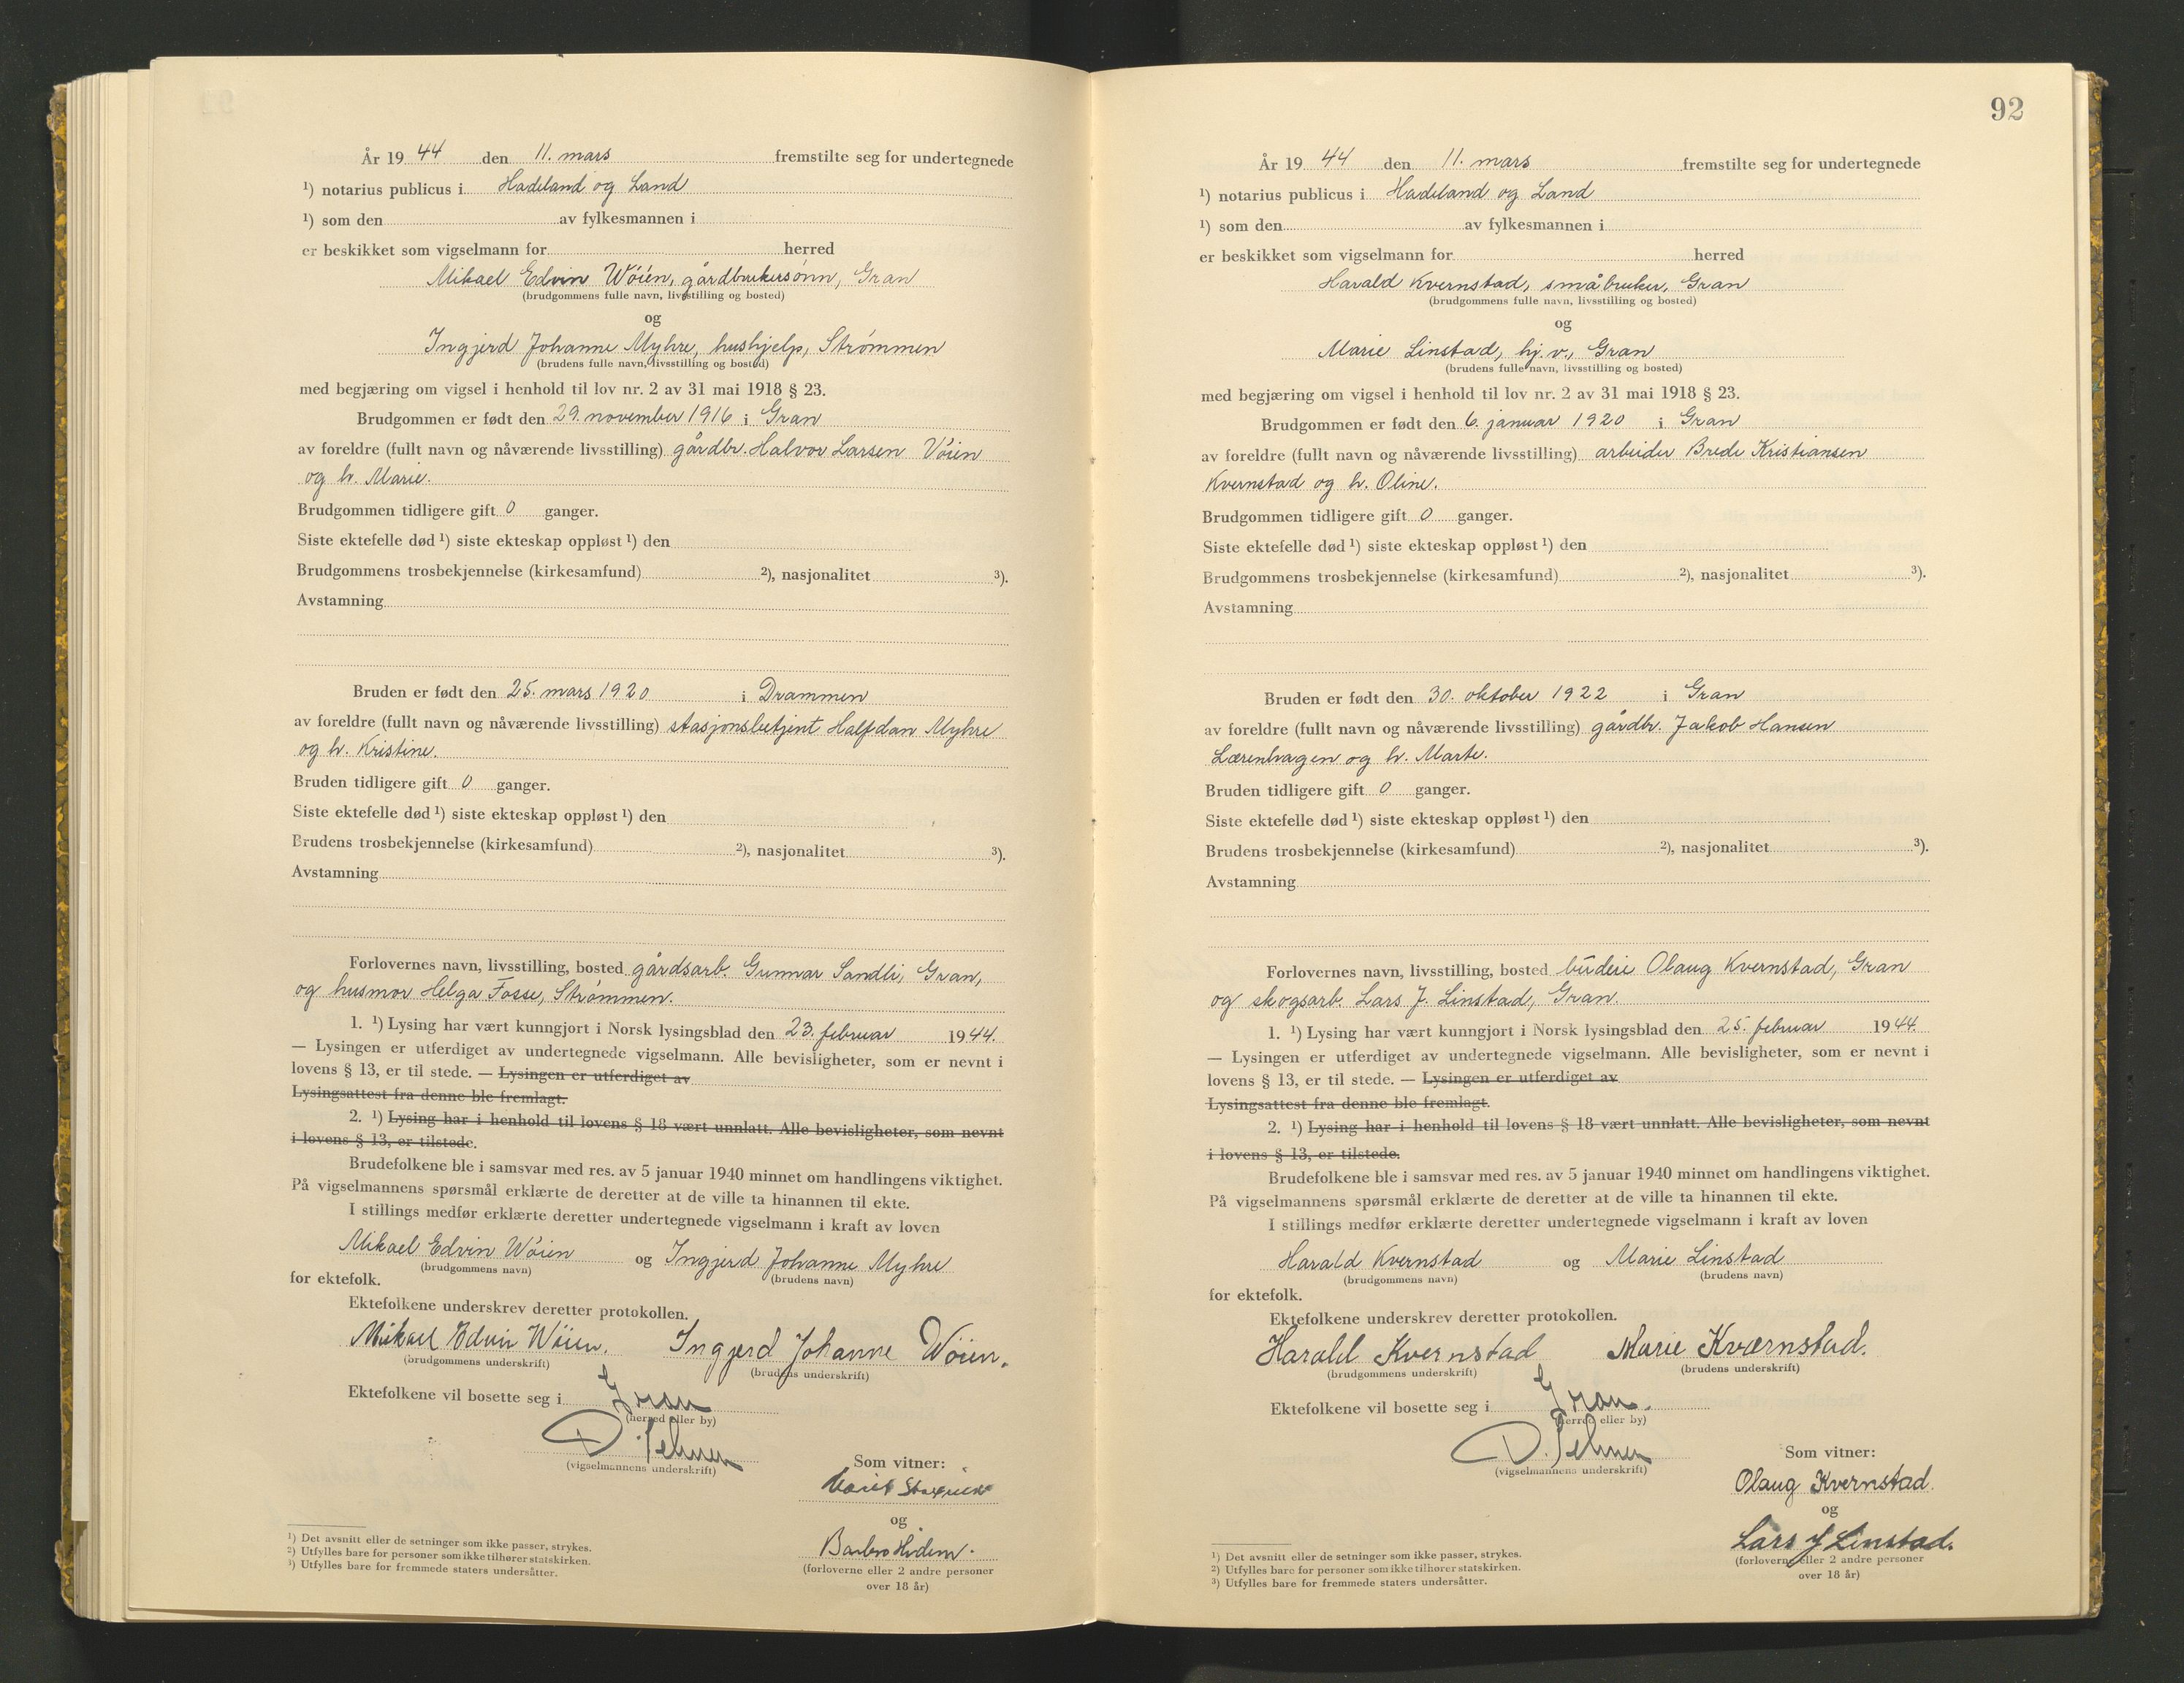 År 1944 den 11. mars fremstilte seg for undertegnede
¹) notarius publicus i Hadeland og Land
¹) som den av fylkesmannen i
er beskikket som vigselmann for herred
Mikael Edvin Wöien, gårdbrukersönn, Gran
(brudgommens fulle navn, livsstilling og bosted)
og
Ingjerd Johanne Myhre, hushjelp, Strömmen
(brudens fulle navn, livsstilling og bosted)
med begjæring om vigsel i henhold til lov nr. 2 av 31 mai 1918 § 23.
Brudgommen er født den 29. november 1916 i Gran
av foreldre (fullt navn og nåværende livsstilling) gårdbr. Halvor Larsen Vöien
og h. Marie.
Brudgommen tidligere gift 0 ganger.
Siste ektefelle død ¹) siste ekteskap oppløst ¹) den
Brudgommens trosbekjennelse (kirkesamfund) ²), nasjonalitet ³).
Avstamning
Bruden er født den 25. mars 1920 i Drammen
av foreldre (fullt navn og nåværende livsstilling) stasjonsbetjent Halfdan Myhre
og h. Kristine.
Bruden tidligere gift 0 ganger.
Siste ektefelle død ¹) siste ekteskap oppløst ¹) den
Brudens trosbekjennelse (kirkesamfund) ²), nasjonalitet ³).
Avstamning
Forlovernes navn, livsstilling, bosted gårdsarb. Gunnar Sandli, Gran,
og husmor Helga Fosse, Strömmen.
1. ¹) Lysing har vært kunngjort i Norsk lysingsblad den 23. februar 1944.
— Lysingen er utferdiget av undertegnede vigselmann. Alle bevisligheter, som er nevnt i
lovens § 13, er til stede. — Lysingen er utferdiget av
Lysingsattest fra denne ble fremlagt.
2. ¹) Lysing har i henhold til lovens § 18 vært unnlatt. Alle bevisligheter, som nevnt
i lovens § 13, er tilstede.
Brudefolkene ble i samsvar med res. av 5 januar 1940 minnet om handlingens viktighet.
På vigselmannens spørsmål erklærte de deretter at de ville ta hinannen til ekte.
I stillings medfør erklærte deretter undertegnede vigselmann i kraft av loven
Mikael Edvin Wöien og Ingjerd Johanne Myhre
(brudgommens navn) (brudens navn)
for ektefolk.
Ektefolkene underskrev deretter protokollen.
Mikael Edvin Wöien. Ingjerd Johanne Wöien.
(brudgommens underskrift) (brudens underskrift)
Ektefolkene vil bosette seg i Gran
(herred eller by)
(vigselmannens underskrift)
Som vitner:
og
(forloverne eller 2 andre personer
over 18 år)
¹) Det avsnitt eller de setninger som ikke passer, strykes.
²) Utfylles bare for personer som ikke tilhører statskirken.
³) Utfylles bare for fremmede staters undersåtter.
92
År 1944 den 11. mars fremstilte seg for undertegnede
¹) notarius publicus i Hadeland og Land
¹) som den av fylkesmannen i
er beskikket som vigselmann for herred
Harald Kvernstad, småbruker, Gran
(brudgommens fulle navn, livsstilling og bosted)
og
Marie Linstad, hj.v., Gran
(brudens fulle navn, livsstilling og bosted)
med begjæring om vigsel i henhold til lov nr. 2 av 31 mai 1918 § 23.
Brudgommen er født den 6. januar 1920 i Gran
av foreldre (fullt navn og nåværende livsstilling) arbeider Brede Kristiansen
Kvernstad og h. Oline.
Brudgommen tidligere gift 0 ganger.
Siste ektefelle død ¹) siste ekteskap oppløst ¹) den
Brudgommens trosbekjennelse (kirkesamfund) ²), nasjonalitet ³).
Avstamning
Bruden er født den 30. oktober 1922 i Gran
av foreldre (fullt navn og nåværende livsstilling) gårdbr. Jakob Hansen
Lærenhagen og h. Marte.
Bruden tidligere gift 0 ganger.
Siste ektefelle død ¹) siste ekteskap oppløst ¹) den
Brudens trosbekjennelse (kirkesamfund) ²), nasjonalitet ³).
Avstamning
Forlovernes navn, livsstilling, bosted budeie Olaug Kvernstad, Gran
og skogsarb. Lars J. Linstad, Gran.
1. ¹) Lysing har vært kunngjort i Norsk lysingsblad den 25. februar 1944.
— Lysingen er utferdiget av undertegnede vigselmann. Alle bevisligheter, som er nevnt i
lovens § 13, er til stede. — Lysingen er utferdiget av
Lysingsattest fra denne ble fremlagt.
2. ¹) Lysing har i henhold til lovens § 18 vært unnlatt. Alle bevisligheter, som nevnt
i lovens § 13, er tilstede.
Brudefolkene ble i samsvar med res. av 5 januar 1940 minnet om handlingens viktighet.
På vigselmannens spørsmål erklærte de deretter at de ville ta hinannen til ekte.
I stillings medfør erklærte deretter undertegnede vigselmann i kraft av loven
Harald Kvernstad og Marie Linstad
(brudgommens navn) (brudens navn)
for ektefolk.
Ektefolkene underskrev deretter protokollen.
Harald Kvernstad Marie Kværnstad.
(brudgommens underskrift) (brudens underskrift)
Ektefolkene vil bosette seg i Gran.
(herred eller by)
(vigselmannens underskrift)
Som vitner:
Olaug Kvernstad.
og
Lars J Linstad.
(forloverne eller 2 andre personer
over 18 år)
¹) Det avsnitt eller de setninger som ikke passer, strykes.
²) Utfylles bare for personer som ikke tilhører statskirken.
³) Utfylles bare for fremmede staters undersåtter.